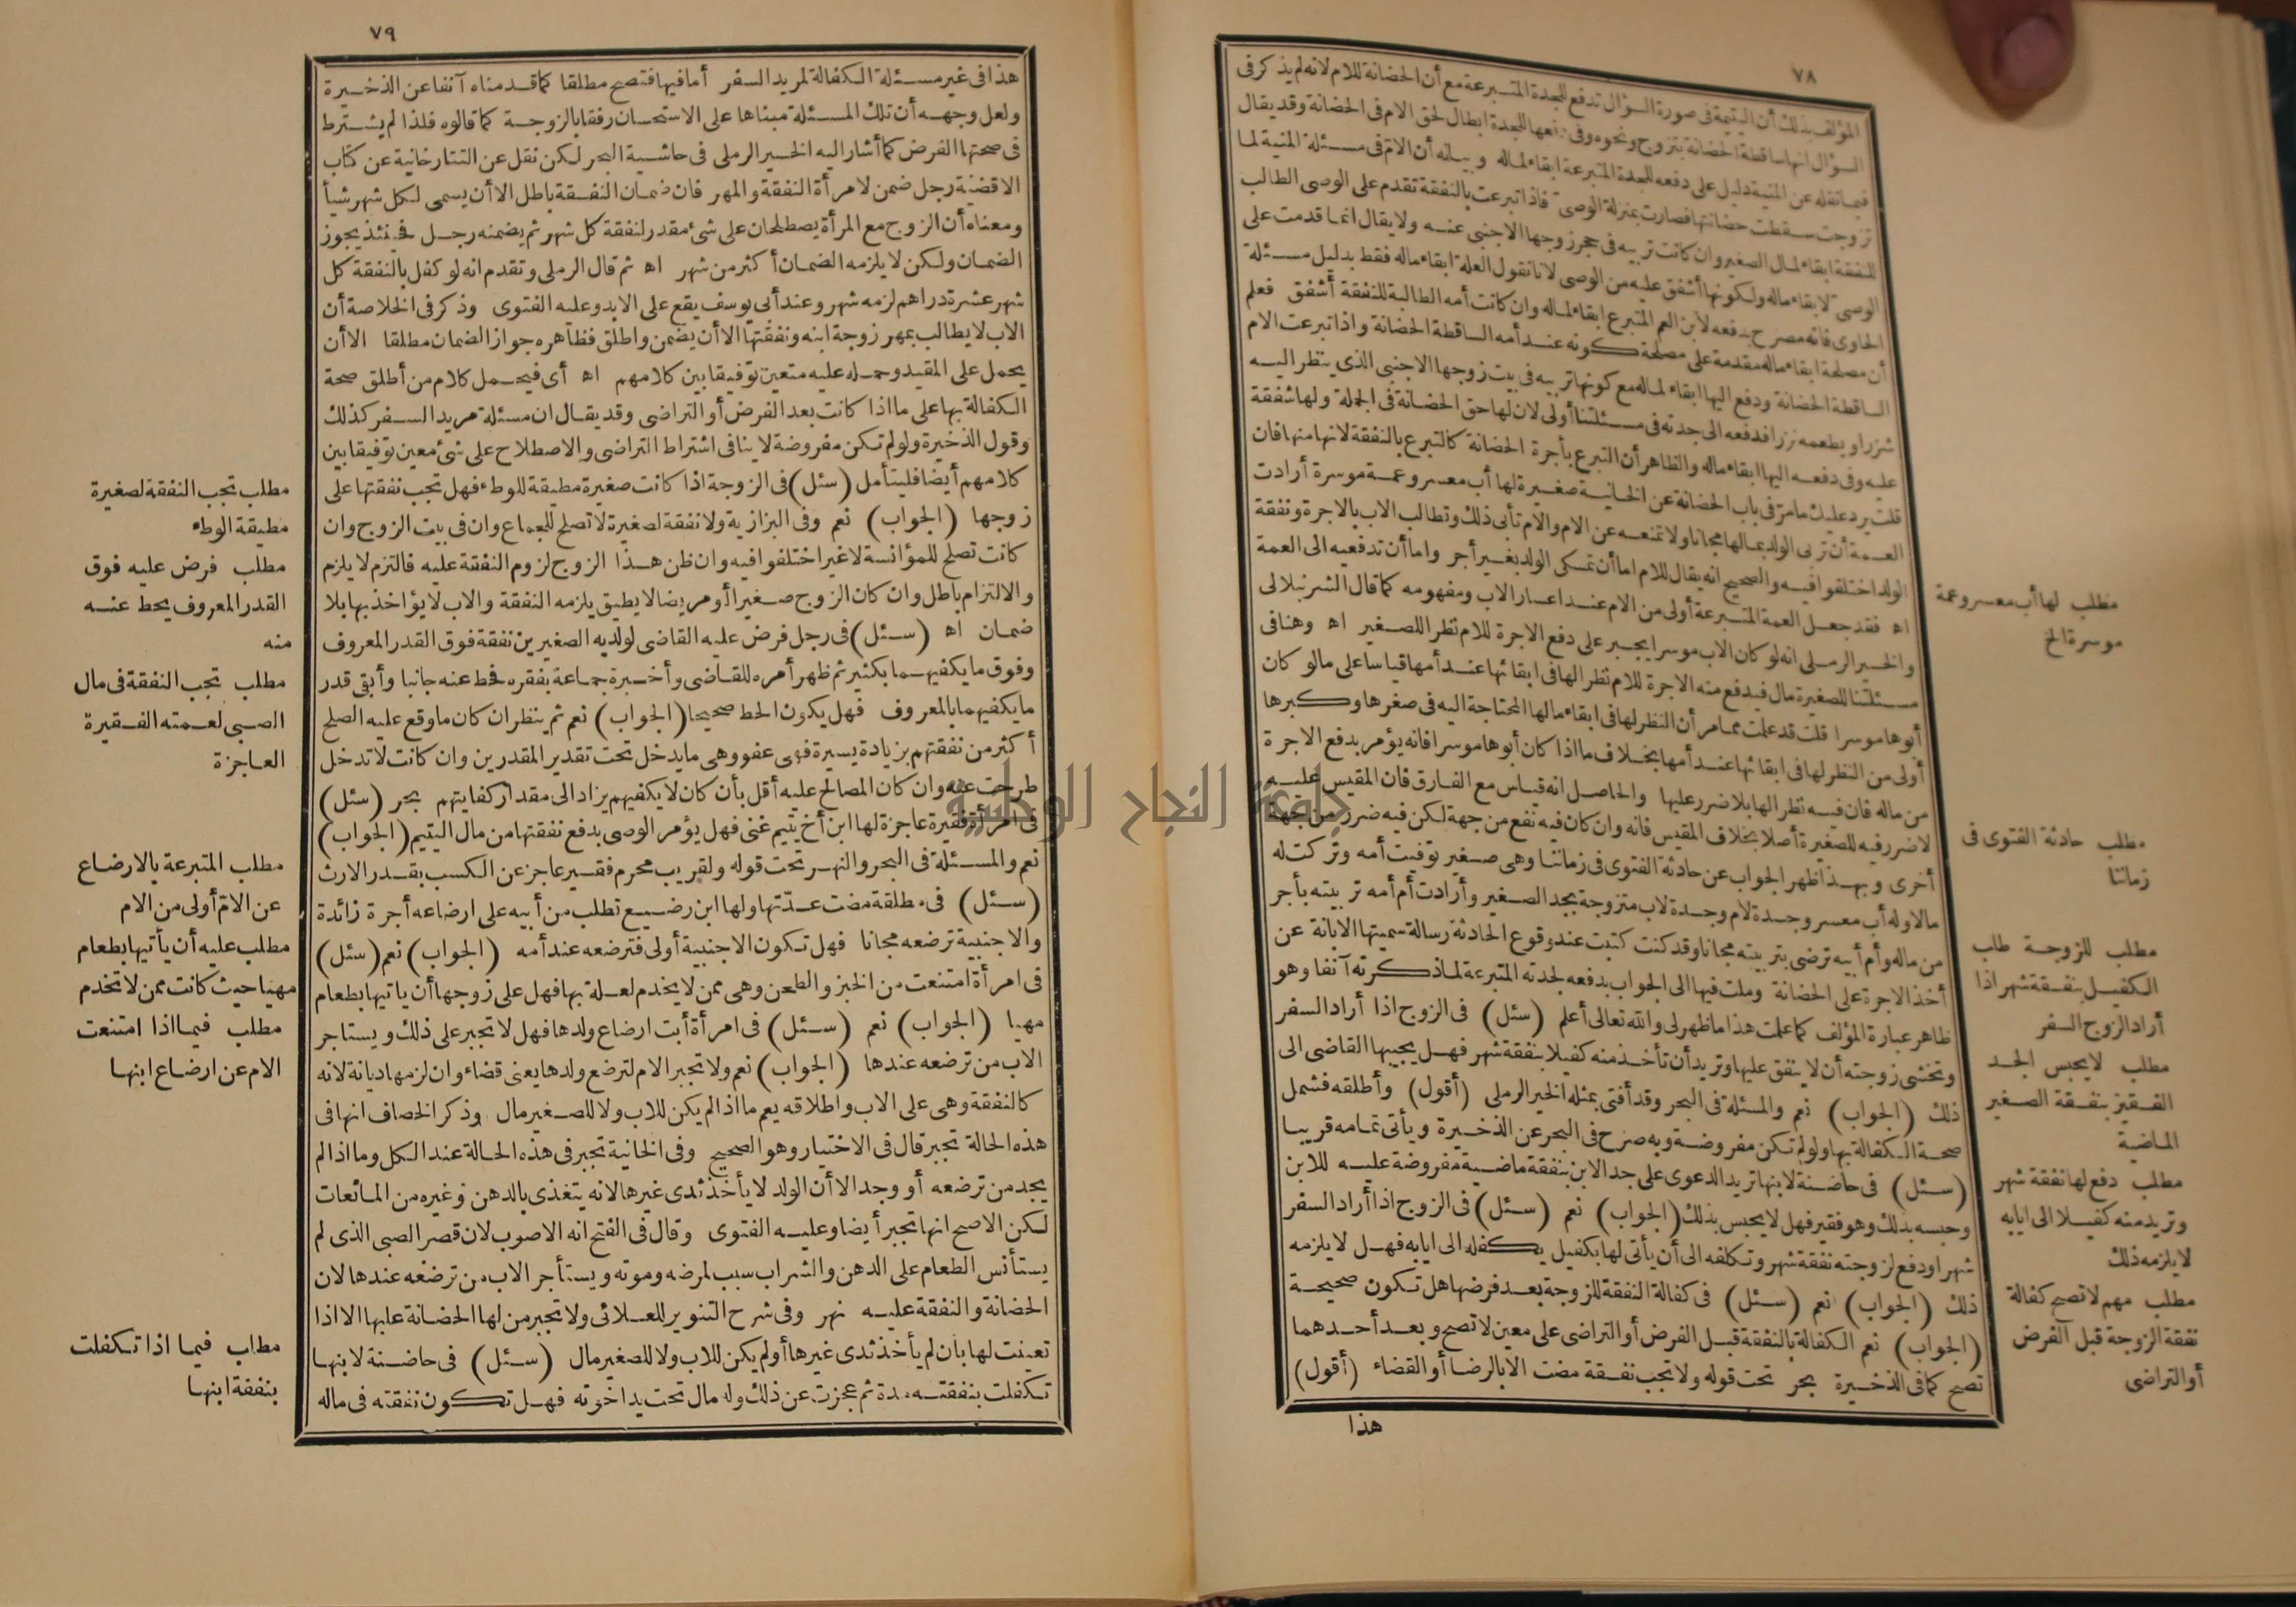 ٧٨
المؤلف بذلك أن اليتيمة فى صورة السؤال تدفع للجدة المتبرعة مع أن الحضانة للام لانه لم يذكر فى
السؤال انها ساقطة الحضانة بتزوج ونحوه وفى دفعها للجدة ابطال لحق الام فى الحضانة وقد يقال
فيما نقله عن المنية دليل على دفعه للجدة المتبرعة ابقاء لماله وبيانه أن الام فى مسئلة المنية لما
تزوجت سقطت حضانتها فصارت بمنزلة الوصى فاذا تبرعت بالنفقة تقدم على الوصى الطالب
للنفقة ابقاء لمال الصغير وان كانت تربيه فى حجر زوجها الاجنبى عنه ولا يقال انما قدمت على
الوصى لابقاء ماله ولكونها أشفق عليه من الوصى لانا نقول العلة ابقاء ماله فقط بدليل مسئلة
الحاوى فانه مصرح بدفعه لابن العم المتبرع ابقاء لماله وان كانت أمه الطالبة للنفقة أشفق فعلم
أن مصلحة ابقاء ماله مقدمة على مصلحة كونه عند أمه الساقطة الحضانة واذا تبرعت الام
الساقطة الحضانة ودفع اليها ابقاء لماله مع كونها تربيه فى بيت زوجها الاجنبى الذى ينظر اليه
شزرا ويطعمه نزرا فدفعه الى جدته فى مسئلتنا أولى لان لها حق الحضانة فى الجملة ولها شفقة
عليه وفى دفعه اليها ابقاء ماله والظاهر أن التبرع بأجرة الحضانة كالتبرع بالنفقة لانها منها فان
قلت يرد عليك ما مر فى باب الحضانة عن الخانية صغيرة لها أب معسر وعمة موسرة أرادت
العمة أن تربى الولد بمالها مجانا ولا تمنعه عن الام والام تأبى ذلك وتطالب الاب بالاجرة ونفقة
الولد اختلفوا فيه والصحيح انه يقال للام اما أن تمسكى الولد بغير أجر واما أن تدفعيه الى العمة
اه فقد جعل العمة المتبرعة أولى من الام عند اعسار الاب ومفهومه كما قال الشرنبلالى
والخير الرملى انه لو كان الاب موسرا يجبر على دفع الاجرة للام نظرا للصغير اه وهنا فى
مسئلتنا للصغيرة مال فيدفع منه الاجرة للام نظرا لها فى ابقائها عند أمها قياسا على ما لو كان
أبوها موسرا قلت قد علمت مما مر أن النظر لها فى ابقاء مالها المحتاجة اليه فى صغرها وكبرها
أولى من النظر لها فى ابقائها عند أمها بخلاف ما اذا كان أبوها موسرا فانه يؤمر بدفع الاجرة
من ماله فان فيه نظرا لها بلا ضرر عليها والحاصل انه قياس مع الفارق فان المقيس عليه
لا ضرر فيه للصغيرة أصلا بخلاف المقيس فانه وان كان فيه نفع من جهة لكن فيه ضرر من جهة
أخرى وبهذا ظهر الجواب عن حادثة الفتوى فى زماننا وهى صغير توفيت أمه وتركت له
مالا وله أب معسر وجدة لام وجدة لاب متزوجة بجد الصغير وأرادت أم أمه تربيته بأجر
من ماله وأم أبيه ترضى بتربيته مجانا وقد كنت كتبت عند وقوع الحادثة رسالة سميتها الابانة عن
أخذ الاجرة على الحضانة وملت فيها الى الجواب بدفعه لجدته المتبرعة لما ذكرته آنفا وهو
ظاهر عبارة المؤلف كما علمت هذا ما ظهر لى والله تعالى أعلم (سئل) فى الزوج اذا أراد السفر
وتخشى زوجته أن لا ينفق عليها وتريد أن تأخذ منه كفيلا بنفقة شهر فهل يجيبها القاضى الى
ذلك (الجواب) نعم والمسئلة فى البحر وقد أفتى بمثله الخير الرملى (أقول) وأطلقه فشمل
صحة الكفالة بها ولو لم تكن مفروضة وبه صرح فى البحر عن الذخيرة ويأتى تمامه قريبا
(سئل) فى حاضنة لابنها تريد الدعوى على جد الابن بنفقة ماضية مفروضة عليه للابن
وحبسه بذلك وهو فقير فهل لا يحبس بذلك (الجواب) نعم (سئل) فى الزوج اذا أراد السفر
شهرا ودفع لزوجته نفقة شهر وتكلفه الى أن يأتى لها بكفيل يكفله الى ايابه فهل لا يلزمه
ذلك (الجواب) نعم (سئل) فى كفالة النفقة للزوجة بعد فرضها هل تكون صحيحة
(الجواب) نعم الكفالة بالنفقة قبل الفرض أو التراضى على معين لا تصح وبعد أحدهما
تصح كما فى الذخيرة بحر تحت قوله ولا تجب نفقة مضت الا بالرضا أو القضاء (أقول)
هذا
مطلب لها أب معسر وعمة
موسرة الخ
مطلب حادثة الفتوى فى
زماننا
مطلب للزوجة طلب
الكفيل بنفقة شهر اذا
أراد الزوج السفر
مطلب لا يحبس الجد
الفقير بنفقة الصغير
الماضية
مطلب دفع لها نفقة شهر
وتريد منه كفيلا الى ايابه
لا يلزمه ذلك
مطلب مهم لا تصح كفالة
نفقة الزوجة قبل الفرض
أو التراضى
٧٩
هذا فى غير مسئلة الكفالة لمريد السفر أما فيها فتصح مطلقا كما قدمناه آنفا عن الذخيرة
ولعل وجهه أن تلك المسئلة مبناها على الاستحسان رفقا بالزوجة كما قالوه فلذا لم يشترط
فى صحتها الفرض كما أشار اليه الخير الرملى فى حاشية البحر لكن نقل عن التتارخانية عن كتاب
الاقضية رجل ضمن لامرأة النفقة والمهر فان ضمان النفقة باطل الا أن يسمى لكل شهر شيأ
ومعناه أن الزوج مع المرأة يصطلحان على شئ مقدر لنفقة كل شهر ثم يضمنه رجل فحينئذ يجوز
الضمان ولكن لا يلزمه الضمان أكثر من شهر اه ثم قال الرملى وتقدم انه لو كفل بالنفقة كل
شهر عشرة دراهم لزمه شهر وعند أبى يوسف يقع على الابد وعليه الفتوى وذكر فى الخلاصة أن
الاب لا يطالب بمهر زوجة ابنه ونفقتها الا أن يضمن واطلق فظاهره جواز الضمان مطلقا الا أن
يحمل على المقيد وحمله عليه متعين توفيقا بين كلامهم اه أى فيحمل كلام من أطلق صحة
الكفالة بها على ما اذا كانت بعد الفرض أو التراضى وقد يقال ان مسئلة مريد السفر كذلك
وقول الذخيرة ولو لم تكن مفروضة لا ينافى اشتراط التراضى والاصطلاح على شئ معين توفيقا بين
كلامهم أيضا فليتأمل (سئل) فى الزوجة اذا كانت صغيرة مطيقة للوطء فهل تجب نفقتها على
زوجها (الجواب) نعم وفى البزازية ولا نفقة لصغيرة لا تصلح للجماع وان فى بيت الزوج وان
كانت تصلح للمؤانسة لا غير اختلفوا فيه وان ظن هذا الزوج لزوم النفقة عليه فالتزم لا يلزم
والالتزام باطل وان كان الزوج صغيرا أو مريضا لا يطيق يلزمه النفقة والاب لا يؤاخذ بها بلا
ضمان اه (سئل) فى رجل فرض عليه القاضى لولديه الصغيرين نفقة فوق القدر المعروف
وفوق ما يكفيهما بكثير ثم ظهر أمره للقاضى وأخبره جماعة بفقره فحط عنه جانبا وأبقى قدر
ما يكفيهما بالمعروف فهل يكون الحط صحيحا (الجواب) نعم ثم ينظر ان كان ما وقع عليه الصلح
أكثر من نفقتهم بزيادة يسيرة فهى عفو وهى ما يدخل تحت تقدير المقدرين وان كانت لا تدخل
طرحت عنه وان كان المصالح عليه أقل بأن كان لا يكفيهم يزاد الى مقدار كفايتهم بحر (سئل)
فى امرأة فقيرة عاجزة لها ابن أخ يتيم غنى فهل يؤمر الوصى بدفع نفقتها من مال اليتيم (الجواب)
نعم والمسئلة فى البحر والنهر تحت قوله ولقريب محرم فقير عاجز عن الكسب بقدر الارث
(سئل) فى مطلقة مضت عدتها ولها ابن رضيع تطلب من أبيه على ارضاعه أجرة زائدة
والاجنبية ترضعه مجانا فهل تكون الاجنبية أولى فترضعه عند أمه (الجواب) نعم (سئل)
فى امرأة امتنعت من الخبز والطحن وهى ممن لا يخدم لعلة بها فهل على زوجها أن ياتيها بطعام
مهيا (الجواب) نعم (سئل) فى امرأة أبت ارضاع ولدها فهل لا تجبر على ذلك ويستاجر
الاب من ترضعه عندها (الجواب) نعم ولا تجبر الام لترضع ولدها يعنى قضاء وان لزمها ديانة لانه
كالنفقة وهى على الاب واطلاقه يعم ما اذا لم يكن للاب ولا للصغير مال وذكر الخصاف انها فى
هذه الحالة تجبر قال فى الاختيار وهو الصحيح وفى الخانية تجبر فى هذه الحالة عند الكل وما اذا لم
يجد من ترضعه أو وجد الا أن الولد لا يأخذ ثدى غيرها لانه يتغذى بالدهن وغيره من المائعات
لكن الاصح انها تجبر أيضا وعليه الفتوى وقال فى الفتح انه الاصوب لان قصر الصبى الذى لم
يستأنس الطعام على الدهن والشراب سبب لمرضه وموته ويستأجر الاب من ترضعه عندها لان
الحضانة والنفقة عليه نهر وفى شرح التنوير للعلائى ولا تجبر من لها الحضانة عليها الا اذا
تعينت لها بان لم يأخذ ثدى غيرها أو لم يكن للاب ولا للصغير مال (سئل) فى حاضنة لابنها
تكفلت بنفقته مدة ثم عجزت عن ذلك وله مال تحت يد اخوته فهل تكون نفقته فى ماله
مطلب تجب النفقة لصغيرة
مطيقة الوطء
مطلب فرض عليه فوق
القدر المعروف يحط عنه
منه
مطلب تجب النفقة فى مال
الصبى لعمته الفقيرة
العاجزة
مطلب المتبرعة بالارضاع
عن الام أولى من الام
مطلب عليه أن يأتيها بطعام
مهيا حيث كانت ممن لا تخدم
مطلب فيما اذا امتنعت
الام عن ارضاع ابنها
مطلب فيما اذا تكفلت
بنفقة ابنها
جامعة النجاح الوطنية